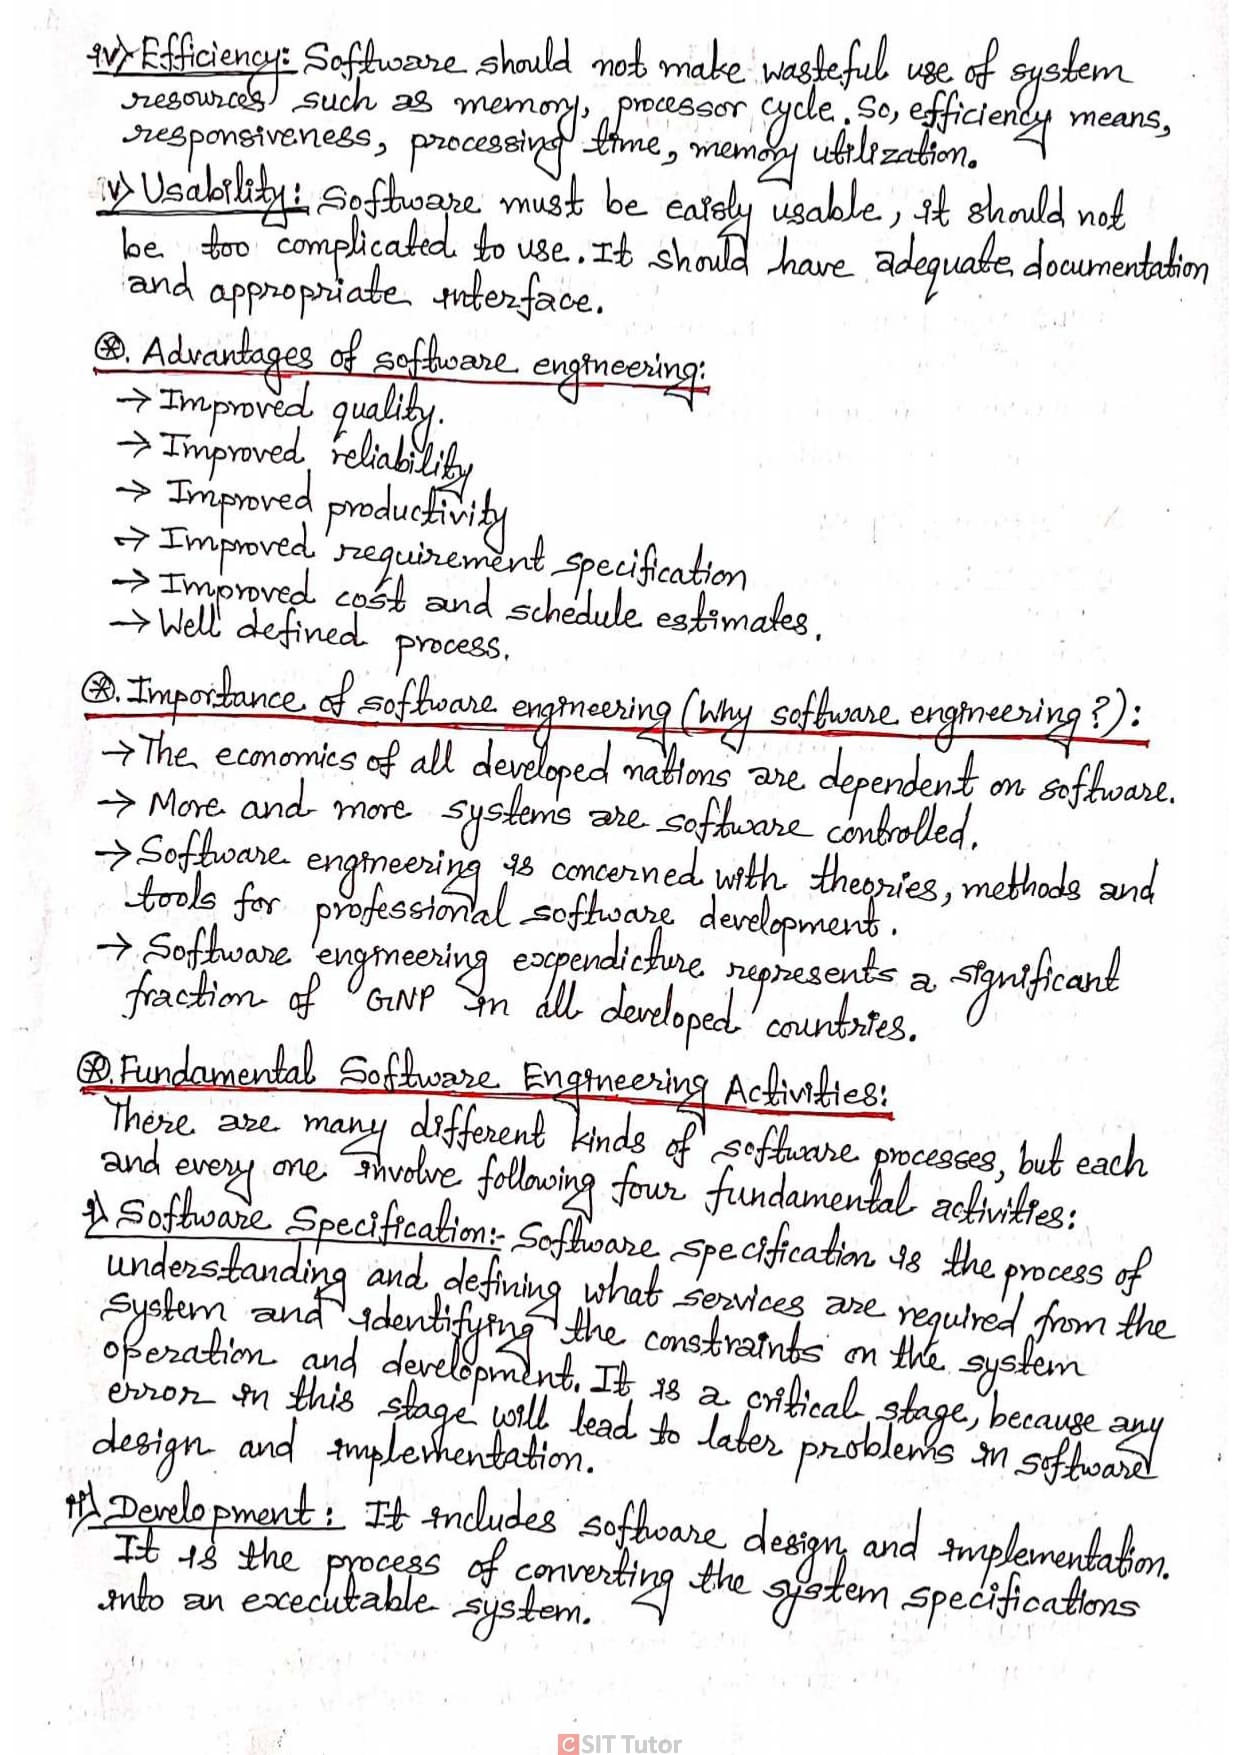 iv) Efficiency: Software should not make wasteful use of system
resources such as memory, processor cycle. So, efficiency means,
responsiveness, processing time, memory utilization.
v) Usability: Software must be eaisly usable, it should not
be too complicated to use. It should have adequate documentation
and appropriate interface.
⊛. Advantages of software engineering:
→ Improved quality.
→ Improved reliability
→ Improved productivity
→ Improved requirement specification
→ Improved cost and schedule estimates.
→ Well defined process.
⊛. Importance of software engineering (Why software engineering?):
→ The economics of all developed nations are dependent on software.
→ More and more systems are software controlled.
→ Software engineering is concerned with theories, methods and
tools for professional software development.
→ Software engineering expendicture represents a significant
fraction of GNP in all developed countries.
⊛. Fundamental Software Engineering Activities:
There are many different kinds of software processes, but each
and every one involve following four fundamental activities:
i) Software Specification:- Software specification is the process of
understanding and defining what services are required from the
system and identifying the constraints on the system
operation and development. It is a critical stage, because any
error in this stage will lead to later problems in software
design and implementation.
ii) Development: It includes software design and implementation.
It is the process of converting the system specifications
into an executable system.
CSIT Tutor